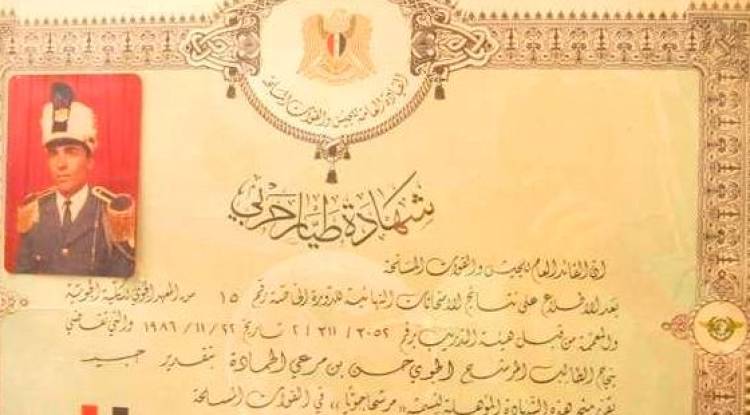 القيادة العامة للجيش والقوات المسلحة
شهادة طيار حربي
ان القائد العام للجيش والقوات المسلحة
بعد الاطلاع على نتائج الامتحانات النهائية للدورة رقم ١٥ من المعهد الجوي للكلية الجوية
والمصدقة من قبل هيئة التدريب برقم ٢/٣١١/٣٠٥٢ تاريخ ١٩٨٦/١١/٢٢ والتي تقتضي
بنجاح الطالب المرشح الجوي حسن بن مرعي الحمادة بتقدير جيد
نقرر منحه هذه الشهادة المؤهلة لتسميته «مرشحا جويا» في القوات المسلحة